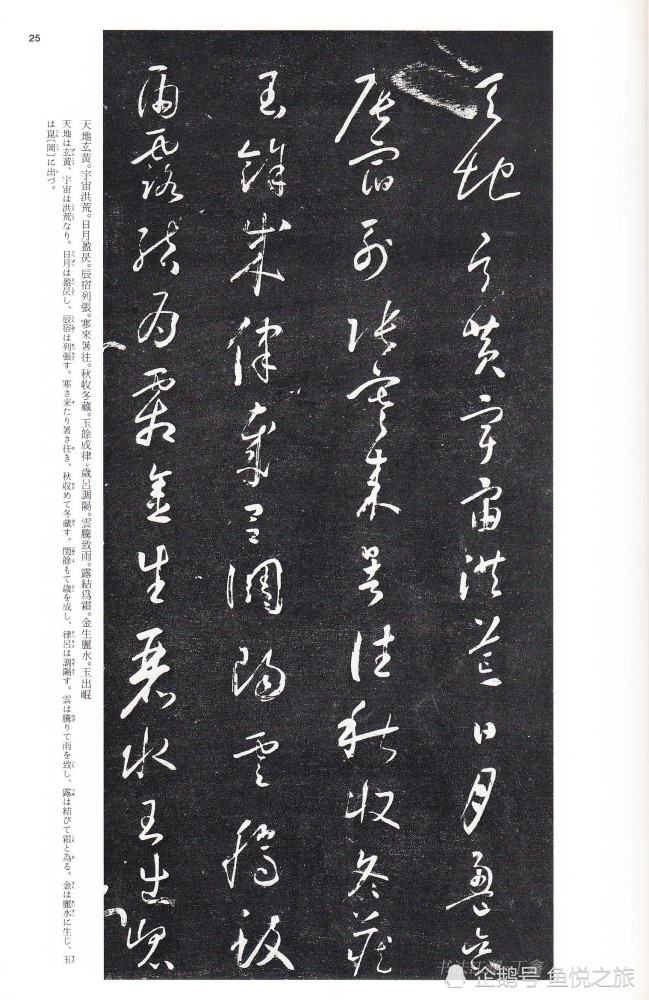 25
天地玄黃宇宙洪荒日月盈昃
辰宿列張寒來暑往秋收冬藏
玉餘成律歲呂調陽雲騰致
雨露結爲霜金生麗水玉出崐
天地玄黃。宇宙洪荒。日月盈昃。辰宿列張。寒來暑往。秋收冬藏。玉餘成律歲呂調陽。雲騰致雨。露結爲霜。金生麗水。玉出崐
天地は玄黃、宇宙は洪荒なり。日月は盈昃し、辰宿は列張す。寒さ来たり暑さ往き、秋収めて冬蔵す。閏餘もて歳を成し、律呂は調陽す。雲は騰りて雨を致し、露は結びて霜と為る。金は麗水に生じ、玉
は崑〔岡〕に出づ。
企鹅号 鱼悦之旅